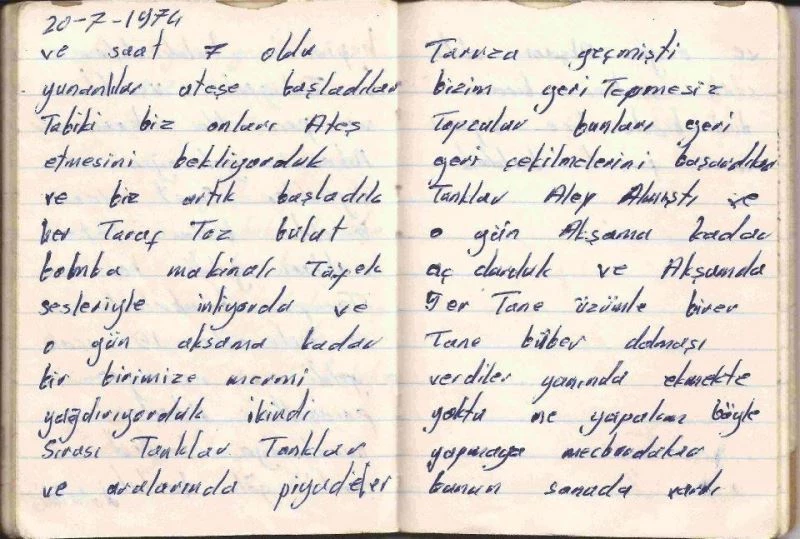 20-7-1974
ve saat 7 oldu
yunanlılar ateşe başladılar
Tabiki biz onları Ateş
etmesini bekliyorduk
ve biz artık başladık
her Taraf Toz bulut
bomba makinalı Tüfek
sesleriyle inliyordu ve
o gün aksama kadar
bir birimize mermi
yağdırıyorduk ikindi
Sırası Tanklar Tanklar
ve aralarında piyadeler
Taruza geçmişti
bizim geri Tepmesiz
Topçular bunları geri
geri çekilmelerini başardılar
Tanklar Alev Almıştı ve
o gün Akşama kadar
aç durduk ve Akşamda
9 er Tane üzümle birer
Tane büber dolması
verdiler yanında ekmekte
yoktu ne yapalım böyle
yapmaya mecburdular
bunun sonuda vardı